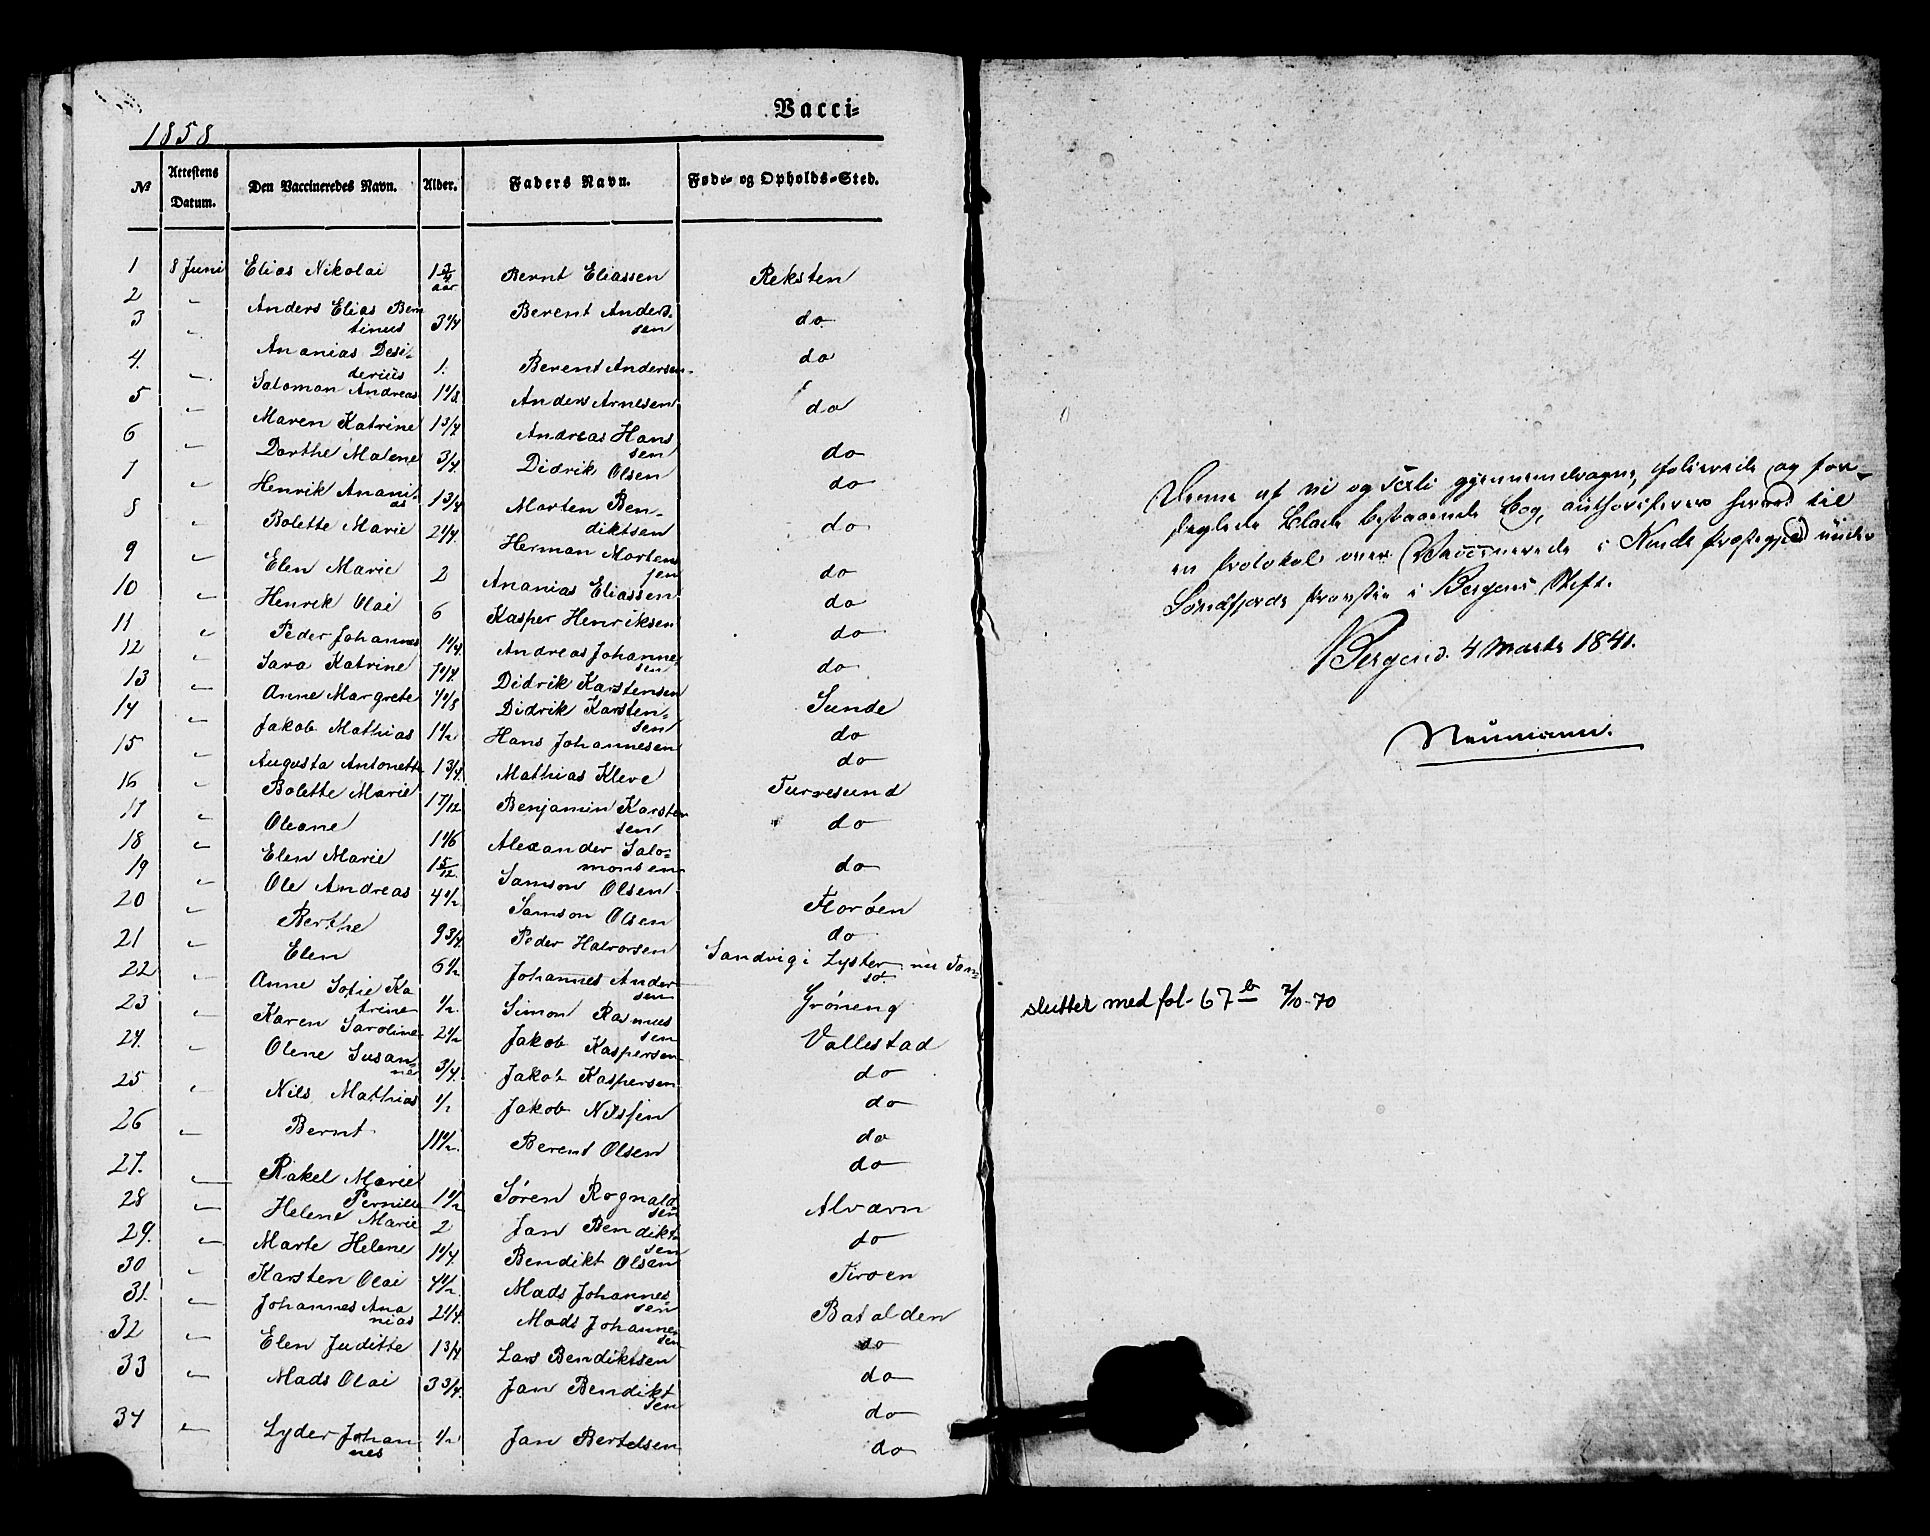 Vacci=
1858
№ Attestens Datum. Den Vaccineredes Navn. Alder. Faders Navn. Føde- og Opholds-Sted.
1 8 Juni Elias Nikolai 1 3/4 aar Bernt Eliassen Reksten
2 " Anders Elias Ben
tinus 3 1/4 Berent Anders=
sen do
3 " Ananias Desi-
derius 1. Berent Andersen do
4. " Salomon Andreas 1 1/8 Anders Arnesen do
5 " Maren Katrine 1 3/4 Andreas Hans
sen do
6 " Dorthe Malene 3/4 Didrik Olsen do
7 " Henrik Anani-
as 1 3/4 Morten Ben-
diktsen do
8 " Bolette Marie 2 1/4 Herman Mortens
sen do
9 " Elen Marie 2 Ananias Eliassen do
10 " Henrik Olai 6 Kasper Henriksen do
11 " Peder Johannes 1 1/4 Andreas Johanne
sen do
12 " Sara Katrine 1 1/4 Didrik Karstensen
13 " Anne Margrete 4 1/8 Didrik Karsten-
sen Sunde
14 " Jakob Mathias 1 1/2 Hans Johannesen do
15 " Augusta Antonette 1 3/4 Mathias Kleve do
16 " Bolette Marie 1 7/12 Benjamin Karsten
sen Furresund
17 " Oleane 1 1/6 Alexander Salo=
monsen do
18 " Elen Marie 1 5/12 Samson Olsen do
19 " Ole Andreas 4 1/2 Samson Olsen Florøen
20 " Berthe 9 3/4 Peder Halvorsen do
21 " Elen 6 1/2 Johannes Ander
sen Sandvig i Lyster nu
22 " Anne Sofie Ka
trine 1/2 Simon Rasmus
sen Grøneng
23 " Karen Saroline 2 1/2 Jakob Kaspersen Vallestad
24. " Olene Susan
na 3/4 Jakob Kaspersen do
25 " Nils Mathias 1/2 Jakob Nilssen do
26 " Bernt 11 1/2 Berent Olsen do
27. " Rakel Marie
Pernille 1 1/2 Søren Rognald
sen do
28 " Helene Marie 2 Jan Bendikt
sen Alværn
29. " Marte Helene 1 1/4 Bendikt Olsen do
30 " Karsten Olai 4 1/2 Mads Johannes
sen Tirøen
31. " Johannes Ana
nias 2 1/4 Mads Johanne
sen Batalden
32 " Elen Juditte 1 3/4 Lars Bendiktsen do
33 " Mads Olai 3 3/4 Jan Bendikt
sen do
34 " Lyder Johan
nes 1/2 Jan Bertelsen do
do
Denne af ni og Treti gjennemdragne, folierede og for-
seglede Blade bestaaende Bog, authoriseres herved til
en Protokol over Vaccinerede i Kinds Præstegjeld under
Søndfjords Provstie i Bergens Stift.
Bergen d. 4 Marts 1841.
Neumann.
slutter med fol. 67 b 7/10-70